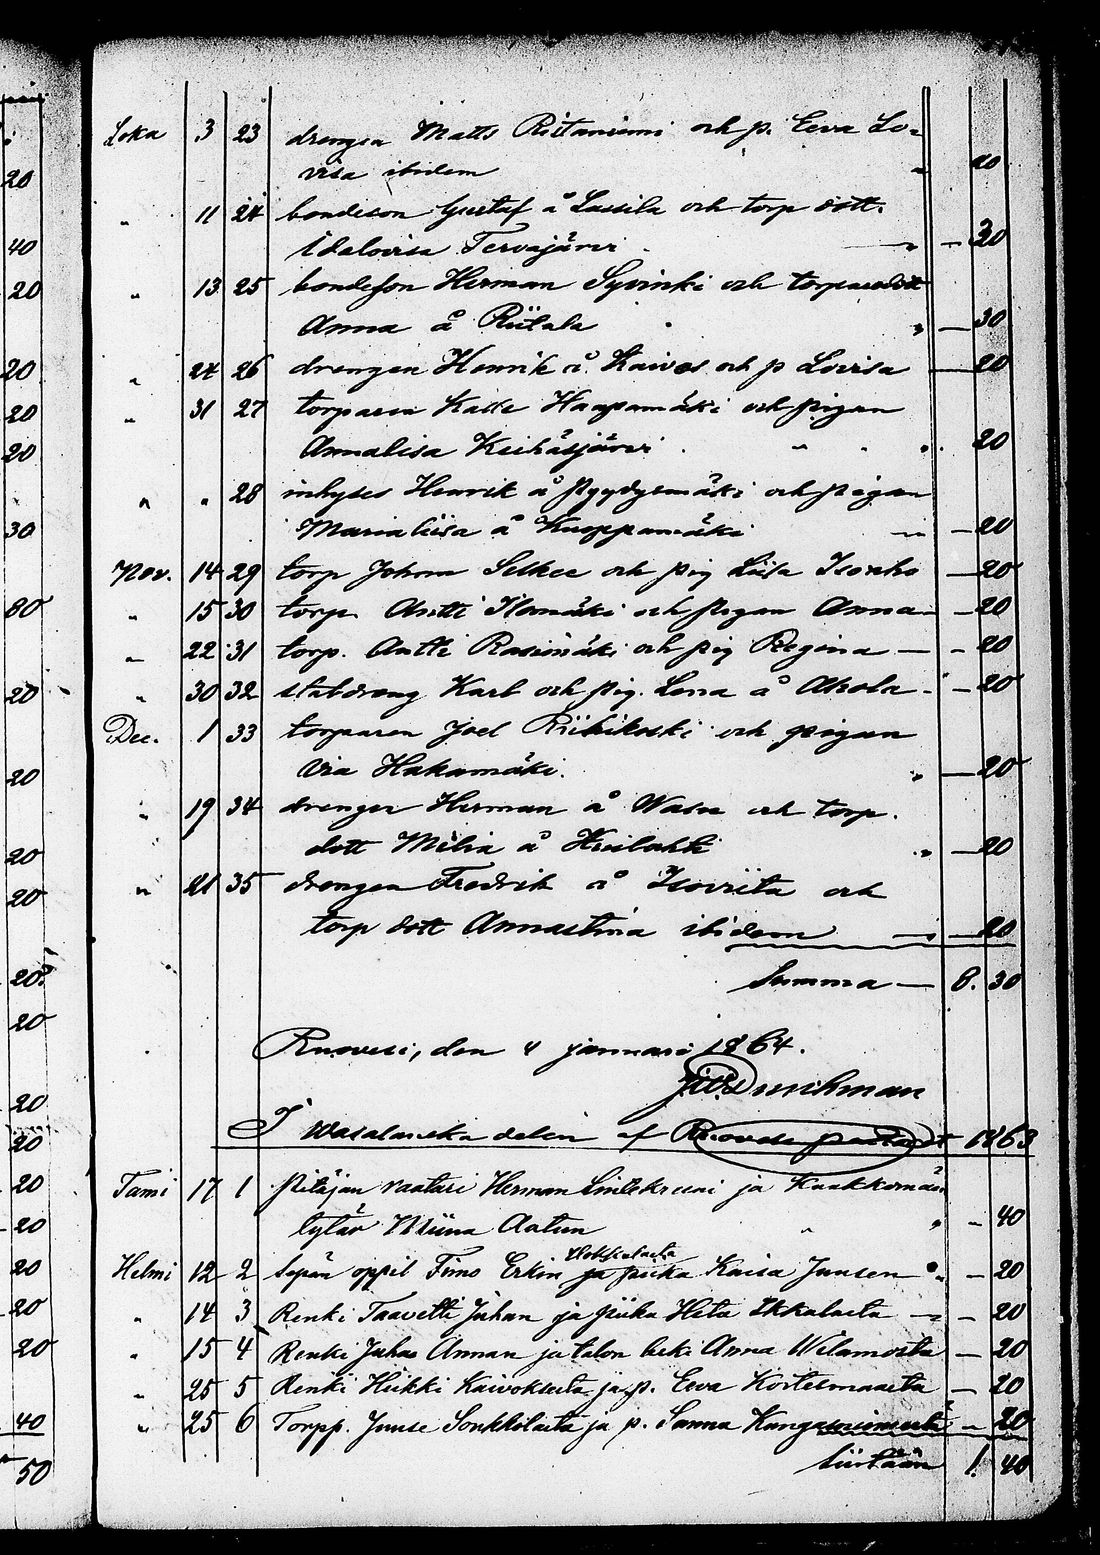 Loka 3 23 drengen Matts Riitaniemi och p. Eeva Lo-
visa ibidem " 20
" 11 24 bondeson Gustaf å Lassila och torp dott.
Idalovisa Tervajärvi " — 30
" 13 25 bondeson Herman Syvinki och torparedott
Anna å Riitala " — 30
" 24 26 drengen Henrik å Kaivos och p Lovisa — 20
" 31 27 torparen Kalle Haapamäki och pigan
Annalisa Keihäsjärvi " 20
" " 28 inhyses Henrik å Pyydysmäki och pigan
Marialiisa å Kuoppamäki — 20
Nov. 14 29 torp Johan Selkee och pig Liisa Isoaho — 20
" 15 30 torp. Antti Ilomäki och pigan Anna — 20
" 22 31 torp. Antti Rasinmäki och pig Regina — 20
" 30 32 stabdreng Karl och pig. Lena å Ahola — 20
Dec. 1 33 torparen Joel Riihikoski och pigan
Via Hakamäki. " — 20
" 19 34 drengen Herman å Wasu och torp.
dott Milia å Huilahti " — 20
" 21 35 drengen Fredrik å Isoriita och
torp dott Annastina ibidem — 20
Summa — 8. 30
Ruovesi, den 4 januari 1864.
Durchman
I Wasalänska delen af Ruovesi pastorat 1863
Tami 17 1 Pitäjän vaatari Herman ja Kaakkomäen
tytär Miina Aatun " — 40
Helmi 12 2 Sepän oppil Timo Erkin ja piika Kaisa Juusen " — 20
" 14 3 Renki Taavetti Juhan ja piika Heta Ikkalasta — 20
" 15 4 Renki Juhan Annan ja talon leski Anna Wilamosta — 20
" 25 5 Renki Heikki Kaivokselta ja p. Eeva Kortesmaasta — 20
" 25 6 Torpp. Juuse Sonkkilasta ja p. Sanna — 20
Siirtään 1. 40
20
40
20
20
20
20
30
80
20
20
20
20
20
20
20
20
20
20
20
20
20
40
50